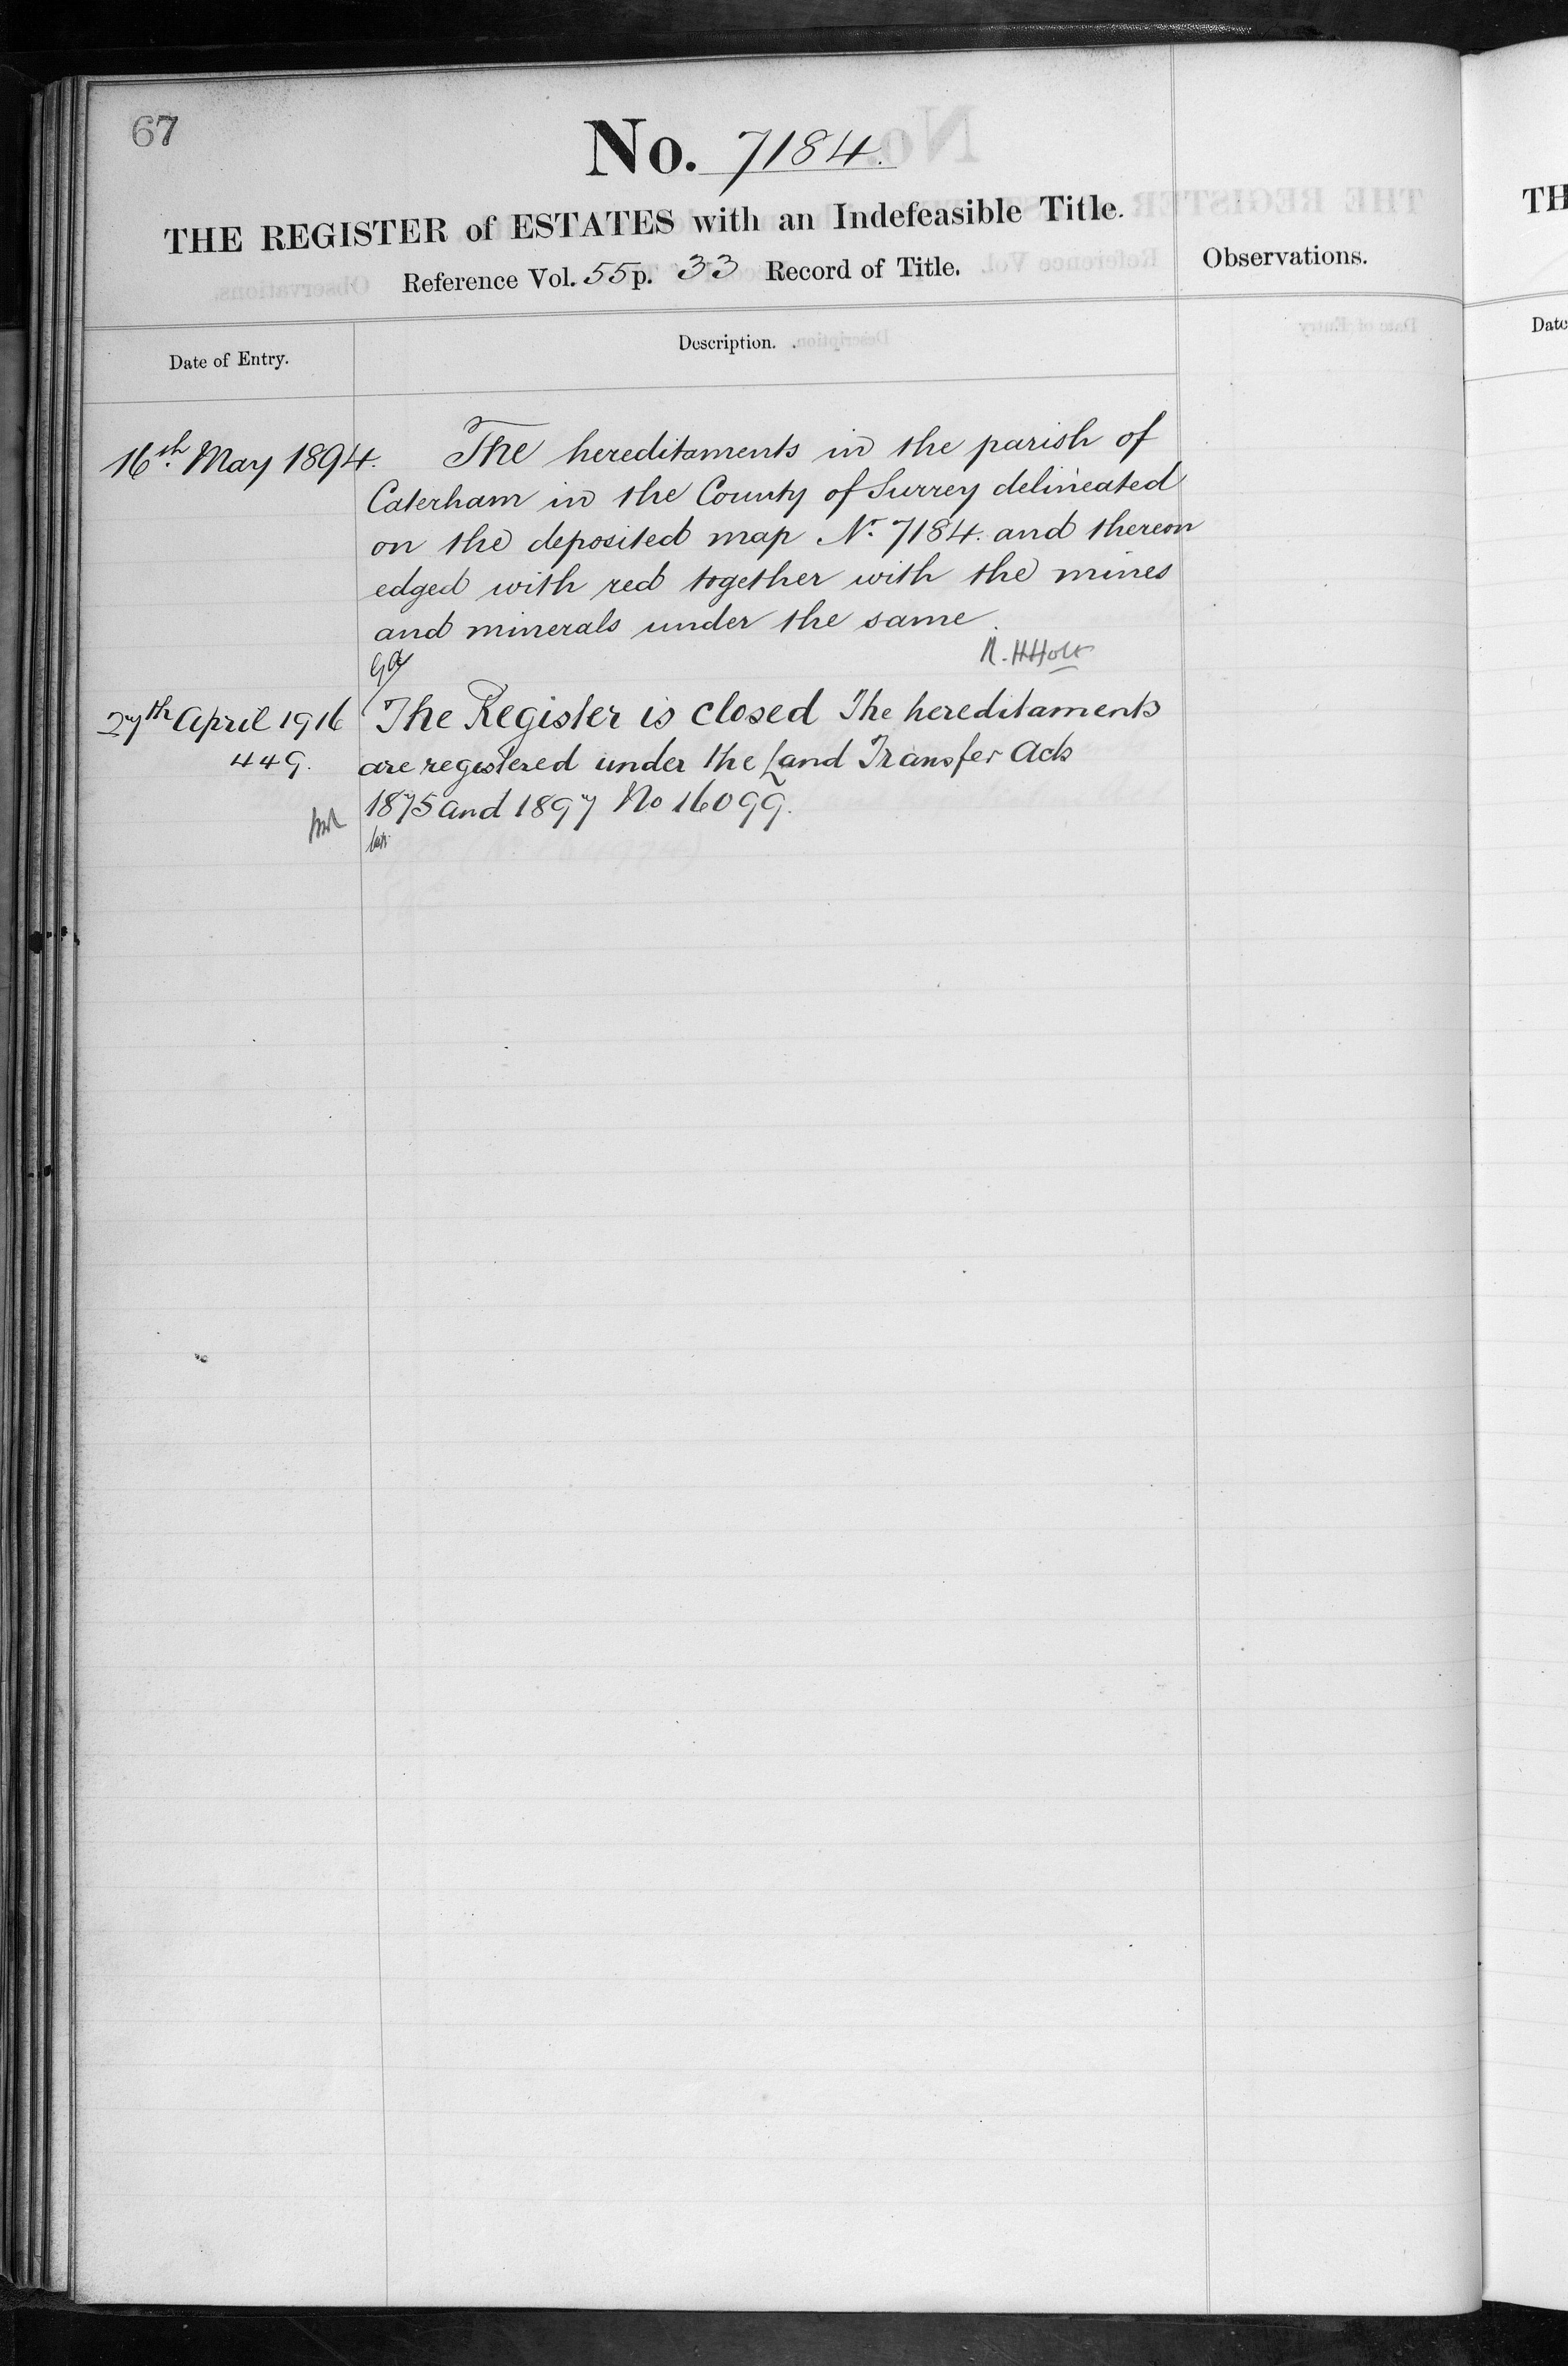 67
No. 7184.
THE REGISTER of ESTATES with an Indefeasible Title.
Reference Vol. 55 p. 33 Record of Title.
Observations.
Date of Entry.
Description.
16th May 1894.
The hereditaments in the parish of
Caterham in the County of Surrey delineated
on the deposited map No. 7184. and thereon
edged with red together with the mines
and minerals under the same.
R. H Holt
27th April 1916
449.
The Register is closed The hereditaments
are registered under the Land Transfer Acts
1875 and 1897 No 16099.
TH
Date